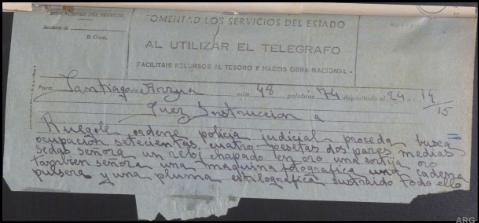 INDICACIONES DEL SERVICIO
FOMENTAD LOS SERVICIOS DEL ESTADO
AL UTILIZAR EL TELEGRAFO
FACILITAIS RECURSOS AL TESORO Y HACEIS OBRA NACIONAL
Para Santiago núm. 48 palabras 74 depositado el 24 a las 14/15
Juez Instruccion a
Ruegole ordene policia judicial proceda busca
ocupacion setecientas cuatro pesetas dos pares medias
sedas señora un reloj chapado en oro una sortija oro
tambien señora una maquina fotografica una cadena
pulsera y una pluma estilografica sustraido todo ello
ARG